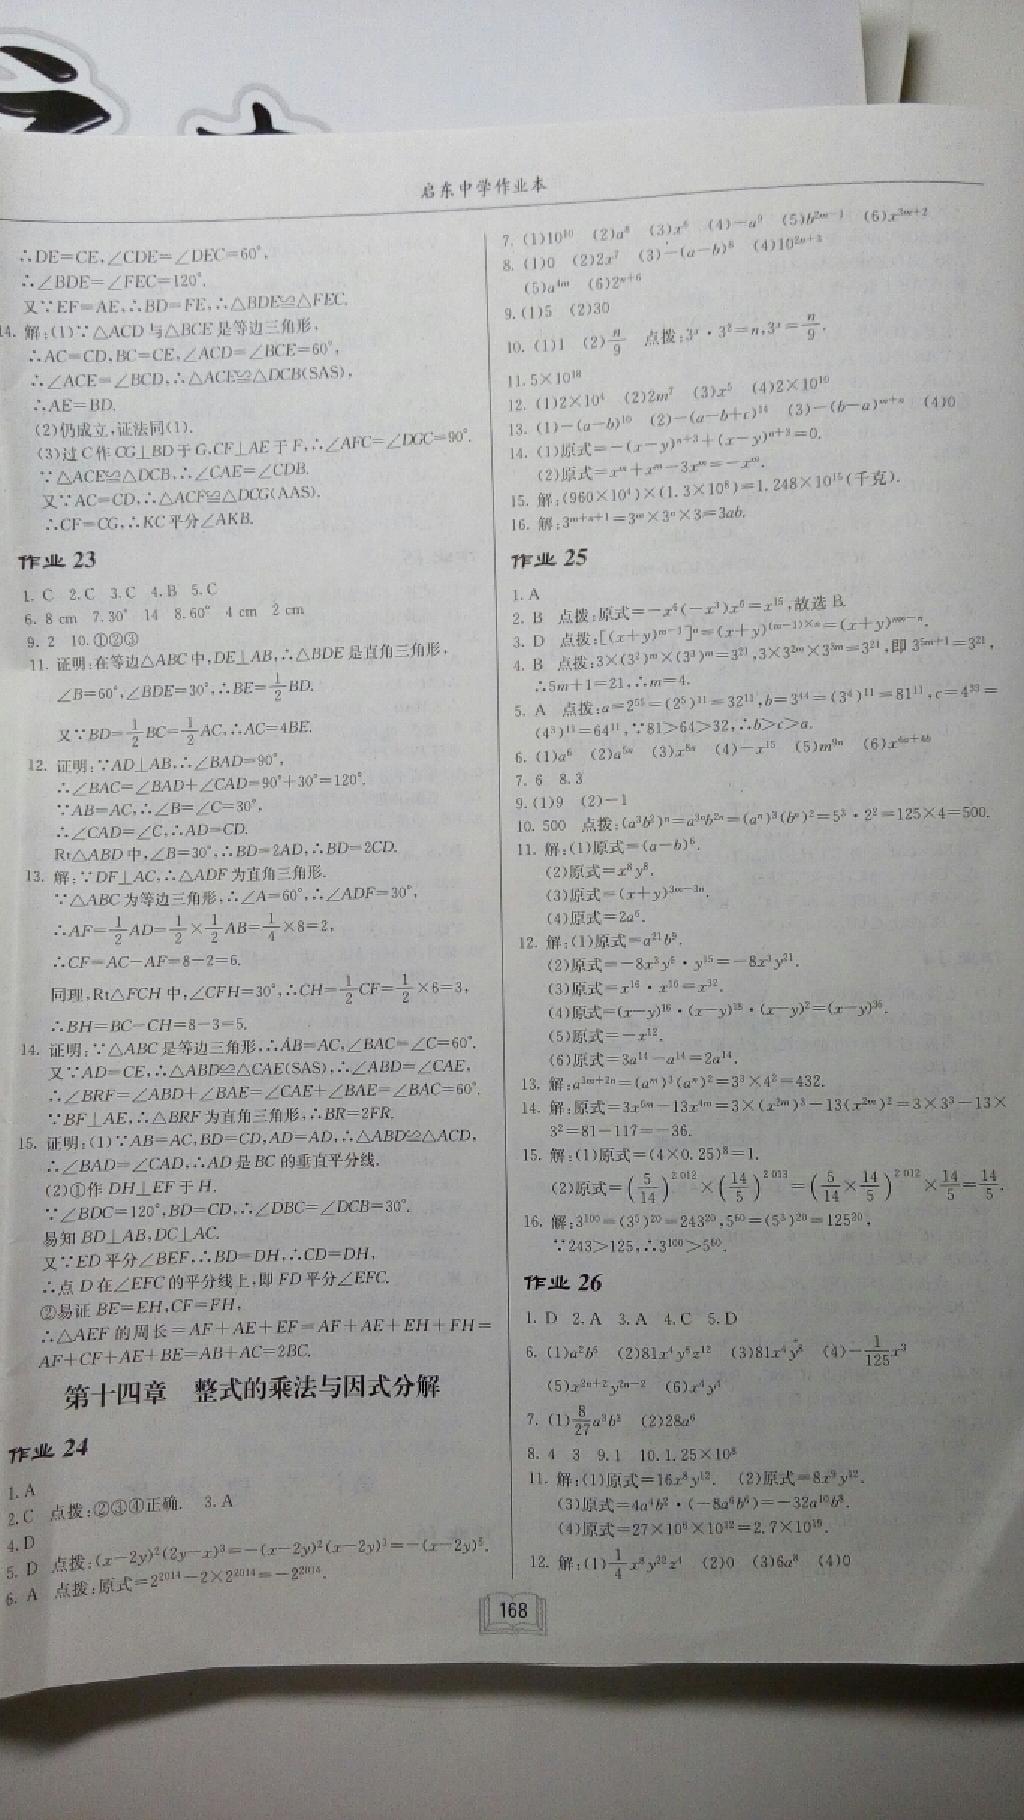 启东中学作业本
∴DE=CE,∠CDE=∠DEC=60°,
∴∠BDE=∠FEC=120°.
又∵EF=AE,∴BD=FE,∴△BDE≌△FEC.
14. 解:(1)∵△ACD与△BCE是等边三角形,
∴AC=CD,BC=CE,∠ACD=∠BCE=60°,
∴∠ACE=∠BCD,∴△ACE≌△DCB(SAS),
∴AE=BD.
(2)仍成立,证法同(1).
(3)过C作CG⊥BD于G,CF⊥AE于F,∴∠AFC=∠DGC=90°.
∵△ACE≌△DCB,∴∠CAE=∠CDB.
又∵AC=CD,∴△ACF≌△DCG(AAS).
∴CF=CG,∴KC平分∠AKB.
作业 23
1. C 2. C 3. C 4. B 5. C
6. 8 cm 7. 30° 14 8. 60° 4 cm 2 cm
9. 2 10. ①②③
11. 证明:在等边△ABC中,DE⊥AB,∴△BDE是直角三角形,
∠B=60°,∠BDE=30°,∴BE=1/2BD.
又∵BD=1/2BC=1/2AC,∴AC=4BE.
12. 证明:∵AD⊥AB,∴∠BAD=90°,
∴∠BAC=∠BAD+∠CAD=90°+30°=120°.
∵AB=AC,∴∠B=∠C=30°,
∴∠CAD=∠C,∴AD=CD.
Rt△ABD中,∠B=30°,∴BD=2AD,∴BD=2CD.
13. 解:∵DF⊥AC,∴△ADF为直角三角形.
∵△ABC为等边三角形,∴∠A=60°,∴∠ADF=30°,
∴AF=1/2AD=1/2×1/2AB=1/4×8=2,
∴CF=AC-AF=8-2=6.
同理,Rt△FCH中,∠CFH=30°,∴CH=1/2CF=1/2×6=3,
∴BH=BC-CH=8-3=5.
14. 证明:∵△ABC是等边三角形,∴AB=AC,∠BAC=∠C=60°.
又∵AD=CE,∴△ABD≌△CAE(SAS),∴∠ABD=∠CAE,
∴∠BRF=∠ABD+∠BAE=∠CAE+∠BAE=∠BAC=60°.
∵BF⊥AE,∴△BRF为直角三角形,∴BR=2FR.
15. 证明:(1)∵AB=AC,BD=CD,AD=AD,∴△ABD≌△ACD,
∴∠BAD=∠CAD,∴AD是BC的垂直平分线.
(2)①作DH⊥EF于H.
∵∠BDC=120°,BD=CD,∴∠DBC=∠DCB=30°.
易知BD⊥AB,DC⊥AC.
又∵ED平分∠BEF,∴BD=DH,∴CD=DH,
∴点D在∠EFC的平分线上,即FD平分∠EFC.
②易证BE=EH,CF=FH,
∴△AEF的周长=AF+AE+EF=AF+AE+EH+FH=
AF+CF+AE+BE=AB+AC=2BC.
第十四章 整式的乘法与因式分解
作业 24
1. A
2. C 点拨:②③④正确. 3. A
4. D
5. D 点拨:(x-2y)²(2y-x)³=-(x-2y)²(x-2y)³=-(x-2y)⁵.
6. A 点拨:原式=2²⁰¹⁴-2×2²⁰¹⁴=-2²⁰¹⁴.
7. (1)10¹⁰ (2)a⁸ (3)x⁶ (4)-a⁹ (5)b²ᵐ⁻¹ (6)x³ᵐ⁺²
8. (1)0 (2)2x⁷ (3)-(a-b)⁸ (4)10²ⁿ⁺³
(5)a⁴ᵐ (6)2ⁿ⁺⁶
9. (1)5 (2)30
10. (1)1 (2)n/9 点拨:3ˣ·3²=n,3ˣ=n/9.
11. 5×10¹⁸
12. (1)2×10⁴ (2)2m⁷ (3)x⁵ (4)2×10¹⁰
13. (1)-(a-b)¹⁰ (2)-(a-b+c)¹⁴ (3)-(b-a)ᵐ⁺ⁿ (4)0
14. (1)原式=-(x-y)ⁿ⁺³+(x-y)ⁿ⁺³=0.
(2)原式=xᵐ+xᵐ-3xᵐ=-xᵐ.
15. 解:(960×10⁴)×(1.3×10⁸)=1.248×10¹⁵(千克).
16. 解:3ᵐ⁺ⁿ⁺¹=3ᵐ×3ⁿ×3=3ab.
作业 25
1. A
2. B 点拨:原式=-x⁶(-x³)x⁶=x¹⁵,故选B.
3. D 点拨:[(x+y)ᵐ⁻¹]ⁿ=(x+y)⁽ᵐ⁻¹⁾ˣⁿ=(x+y)ᵐⁿ⁻ⁿ.
4. B 点拨:3×(3²)ᵐ×(3³)ᵐ=3²¹,3×3²ᵐ×3³ᵐ=3²¹,即3⁵ᵐ⁺¹=3²¹,
∴5m+1=21,∴m=4.
5. A 点拨:a=2⁵⁵=(2⁵)¹¹=32¹¹,b=3⁴⁴=(3⁴)¹¹=81¹¹,c=4³³=
(4³)¹¹=64¹¹,∵81>64>32,∴b>c>a.
6. (1)a⁶ (2)a⁵ⁿ (3)x⁸ⁿ (4)-x¹⁵ (5)m⁹ⁿ
7. 6 8. 3
9. (1)9 (2)-1
10. 500 点拨:(a³b²)ⁿ=a³ⁿb²ⁿ=(aⁿ)³(bⁿ)²=5³·2²=125×4=500.
11. 解:(1)原式=(a-b)⁶.
(2)原式=x⁸y⁸.
(3)原式=(x+y)³ᵐ⁻³ⁿ.
(4)原式=2a⁶.
12. 解:(1)原式=a²¹b⁹.
(2)原式=-8x³y⁶·y¹⁵=-8x³y²¹.
(3)原式=x¹⁶·x¹⁶=x³².
(4)原式=(x-y)¹⁶·(x-y)¹⁸·(x-y)²=(x-y)³⁶.
(5)原式=-x¹².
(6)原式=3a¹⁴-a¹⁴=2a¹⁴.
13. 解:a³ᵐ⁺²ⁿ=(aᵐ)³(aⁿ)²=3³×4²=432.
14. 解:原式=3x⁶ᵐ-13x⁴ᵐ=3×(x²ᵐ)³-13(x²ᵐ)²=3×3³-13×
3²=81-117=-36.
15. 解:(1)原式=(4×0.25)⁸=1.
(2)原式=(5/14)²⁰¹²×(14/5)²⁰¹³=(5/14×14/5)²⁰¹²×14/5=14/5.
16. 解:3¹⁰⁰=(3⁵)²⁰=243²⁰,5⁶⁰=(5³)²⁰=125²⁰,
∵243>125,∴3¹⁰⁰>5⁶⁰.
作业 26
1. D 2. A 3. A 4. C 5. D
6. (1)a²b⁶ (2)81x⁴y⁸z¹² (3)81x⁴y⁸ (4)-1/125x³
(5)x²ⁿ⁺²y²ⁿ⁻² (6)x⁴y⁴
7. (1)8/27a³b³ (2)28a⁶
8. 4 3 9. 1 10. 1.25×10⁸
11. 解:(1)原式=16x⁸y¹². (2)原式=8x⁹y¹².
(3)原式=4a⁴b²·(-8a⁶b⁶)=-32a¹⁰b⁸.
(4)原式=27×10⁶×10¹²=2.7×10¹⁹.
12. 解:(1)1/4x⁸y²⁰z⁴ (2)0 (3)6a⁸ (4)0
168